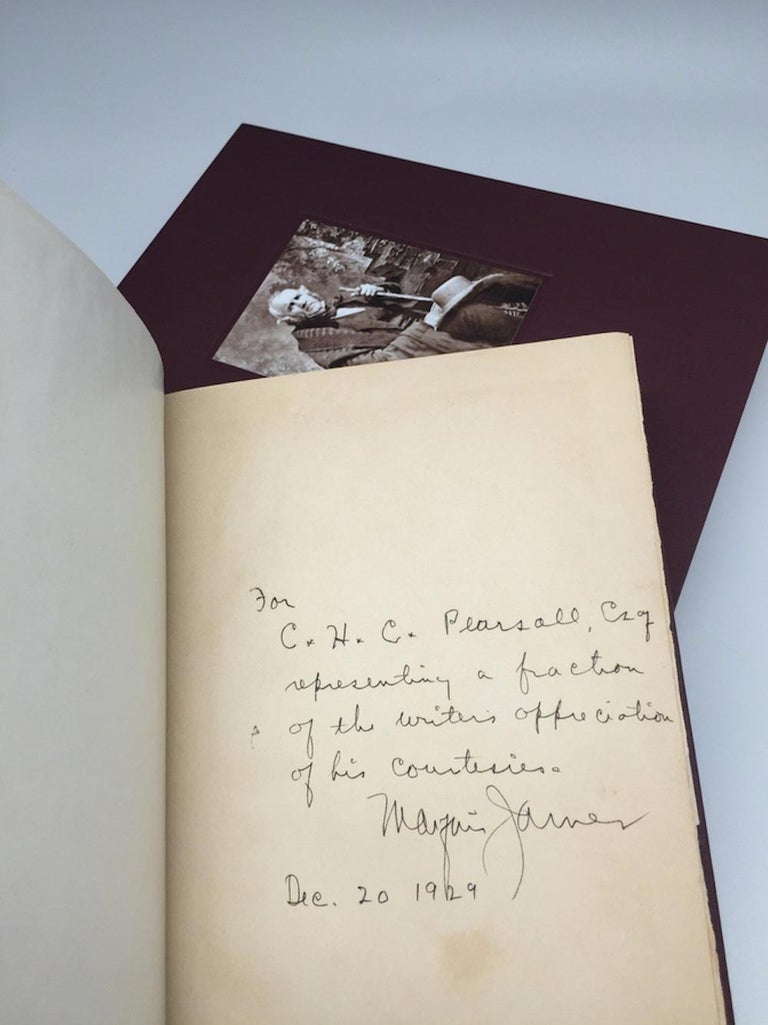 For
C. H. C. Pearsall, Esq
representing a fraction
of the writer's appreciation
of his courtesies.
Marquis James
Dec. 20 1929